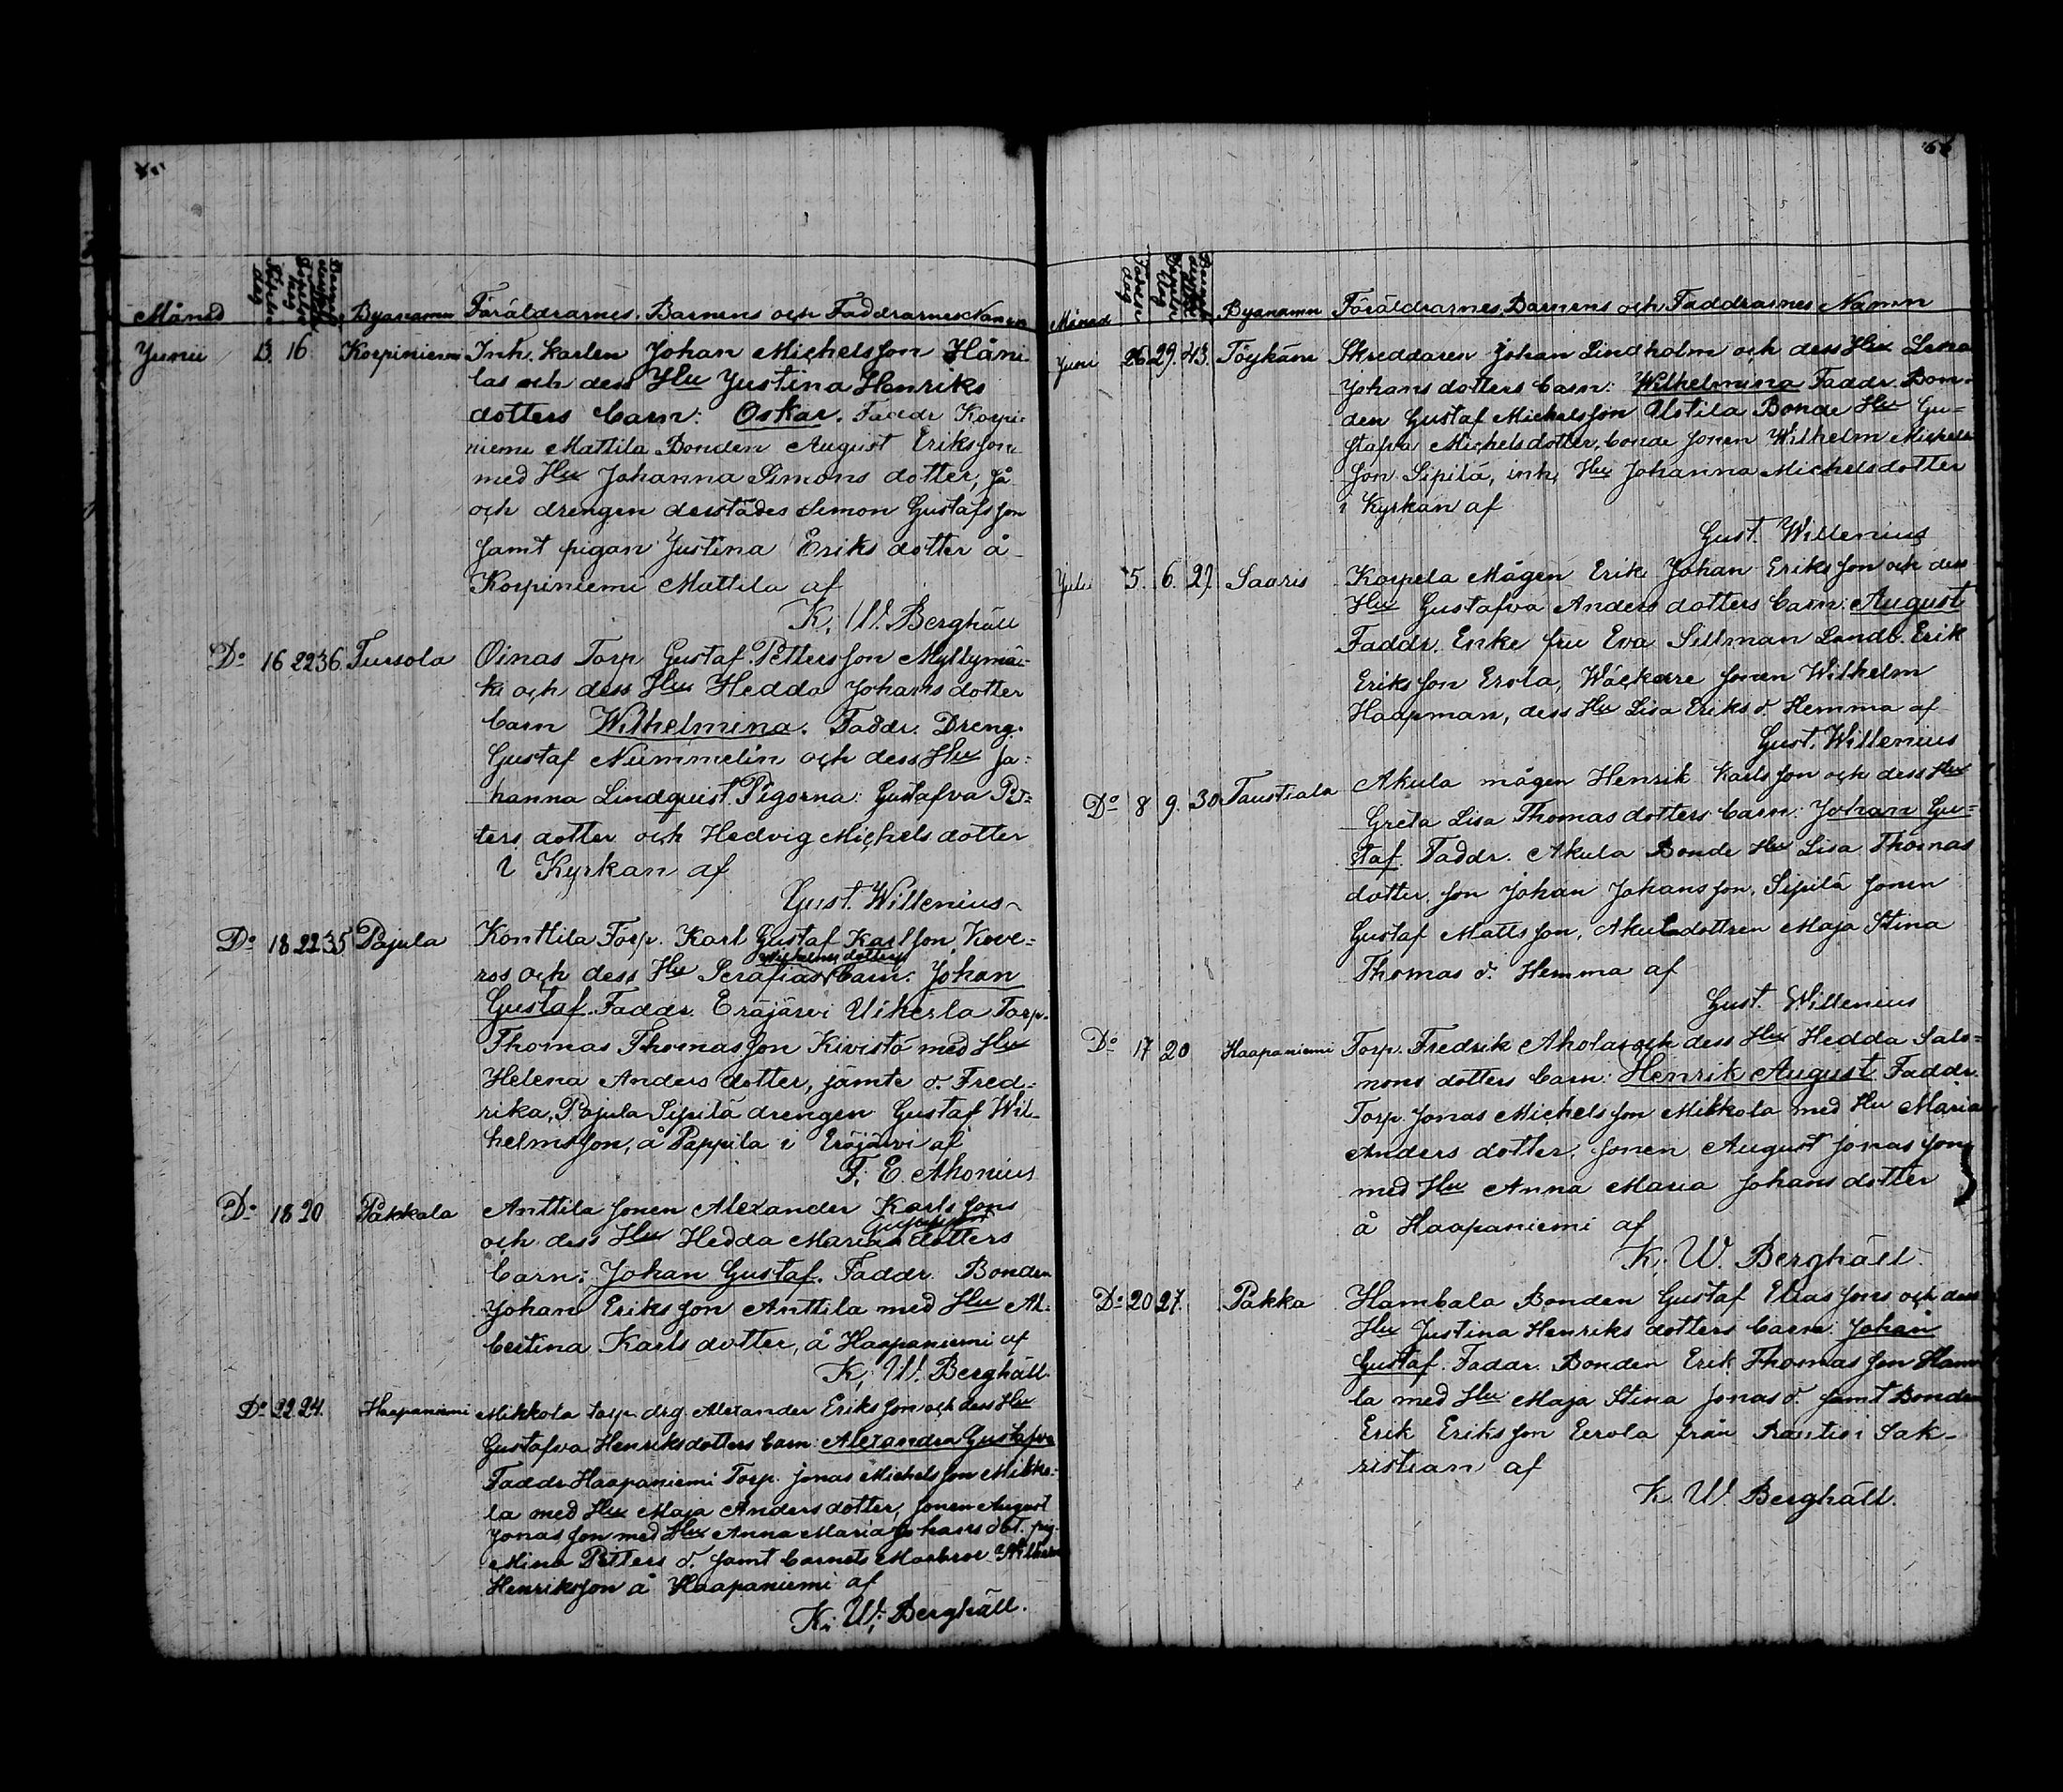 66
Måned Födelse dag Döpelse dag Byanamn Föräldrarnes, Barnens och Faddrarnes Namn
Junii 13. 16. Korpiniemi Inh. karlen Johan Michelsson Håni-
las och dess Hu Justina Henriks
dotters barn: Oskar. Faddr Korpi-
niemi Mattila Bonden August Eriksson
med Hu Johanna Simons dotter, så
och drengen derstädes Simon Gustafsson
samt pigan Justina Eriks dotter å
Korpiniemi Mattila af
K. W. Berghäll
Do 16 22 36. Tursola Oinas Torp Gustaf Pettersson Myllymä-
ki och dess Hu Hedda Johans dotter
barn Wilhelmina. Faddr. Dreng.
Gustaf Nummelin och dess Hu Jo-
hanna Lindquist. Pigorna: Gustafva Pet-
ters dotter och Hedvig Michels dotter
i Kyrkan af
Gust. Willenius
Do 18 22 35 Pajula Konttila Torp. Karl Gustaf Karlson Kove-
Wilhelms dotters
ros och dess Hu Serafias barn: Johan
Gustaf. Faddr. Eräjärvi Uiherla Torp.
Thomas Thomasson Kivistö med Hu
Helena Anders dotter, jämte d. Fred-
rika, Pajula Sipilä drengen Gustaf Wil-
helmsson, å Pappila i Eräjärvi af
F. E. Ahonius
Do 18 20 Pakkala Anttila sonen Alexander Karlssons
och dess Hu Hedda Marias dotters
barn: Johan Gustaf. Faddr. Bonden
Johan Eriksson Anttila med Hu Al-
bertina Karls dotter, å Haapaniemi af
K. W. Berghäll.
Do 22 24. Haapaniemi Mikkola torp. drg. Alexander Eriksson och dess Hu
Gustafva Henriksdotters barn: Alexandra Gustafva
Faddr Haapaniemi Torp. Jonas Michelsson Mikko-
la med Hu Maja Anders dotter, sonen August
Jonasson med Hu Anna Maria Johans dot. pig.
Mina Petters d. samt barnets Morbror Wilhelm
Henriksson å Haapaniemi af
K. W. Berghäll.
Månad Födelse dag Döpelse dag Byanamn Föräldrarnes, Barnens och Faddrarnes Namn
Juni 26 29. 43. Töykäm Skreddaren Johan Lindholm och dess Hu Lena
Johans dotters barn: Wilhelmina Faddr. Bon-
den Gustaf Michelsson Ustila Bonde Hu Gu-
stafva Michelsdotter, bonde sonen Wilhelm Michels
son Sipilä, inh. Hu Johanna Michelsdotter
i Kyrkan af
Gust. Willenius
Juli 5. 6. 27. Saaris Korpela Mågen Erik Johan Eriksson och dess
Hu Gustafva Anders dotters barn: August
Faddr. Enke fru Eva Sillman Landb. Erik
Eriksson Erola, Wäckare sonen Wilhelm
Haapman, dess Hu Lisa Eriks d. Hemma af
Gust. Willenius
Do 8 9. 30. Taustiala Akula mågen Henrik Karlsson och dess Hu
Greta Lisa Thomas dotters barn: Johan Gu-
staf. Faddr. Akula Bonde Hu Lisa Thomas
dotter, son Johan Johansson, Sipilä sonen
Gustaf Mattsson, Akula dottren Maja Stina
Thomas d. Hemma af
Gust. Willenius
Do 17 20 Haapaniemi Torp. Fredrik Ahola och dess Hu Hedda Salo-
mons dotters barn: Henrik August Faddr.
Torp. Jonas Michelsson Mikkola med Hu Maria
Anders dotter, sonen August Jonasson
med Hu Anna Maria Johans dotter
å Haapaniemi af
K. W. Berghäll.
Do 20 27. Pakka Hambala Bonden Gustaf Eliassons och dess
Hu Justina Henriks dotters barn: Johan
Gustaf. Faddr. Bonden Erik Thomasson Ham
la med Hu Maja Stina Jonas d. samt Bonden
Erik Eriksson Eerola från Rautio i Sak-
ristian af
K. W. Berghäll.